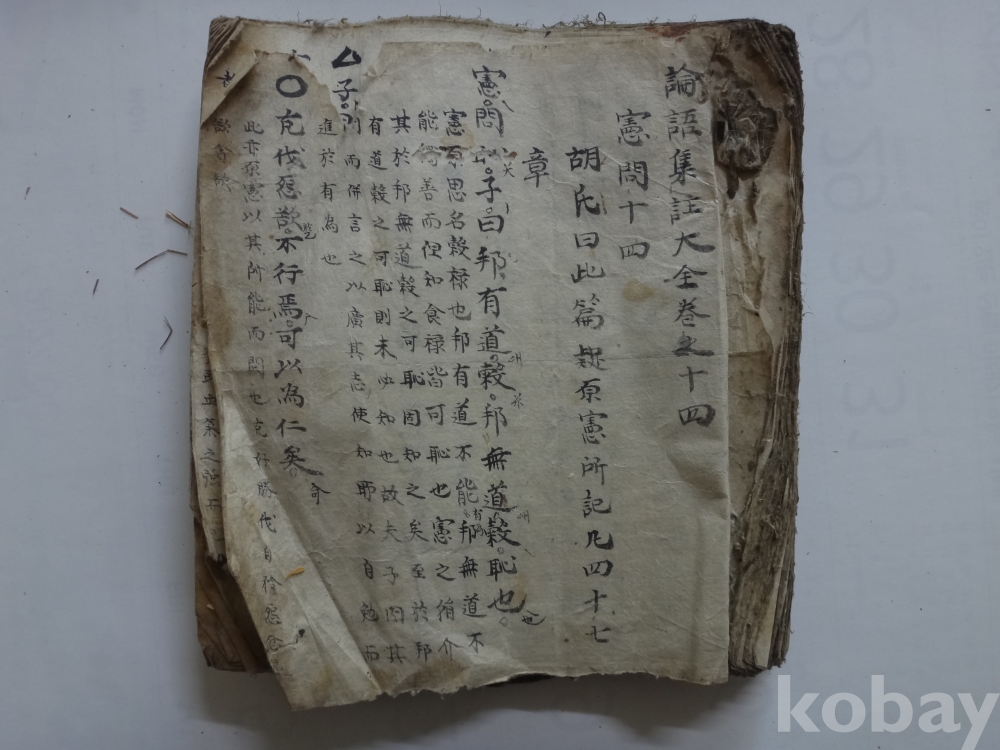 論語集註大全卷之十四
憲問十四
胡氏曰此篇疑原憲所記凡四十七
章
憲問恥子曰邦有道穀邦無道穀恥也
憲原思名穀祿也邦有道不能有為邦無道不
能行善而但知食祿皆可恥也憲之狷介
其於邦無道穀之可恥固知之矣至於邦
有道穀之可恥則未必知也故夫子因其
問而併言之以廣其志使知所以自勉而
進於有為也
克伐怨欲不行焉可以為仁矣
此亦原憲以其所能而問也克好勝伐自矜怨忿
kobay